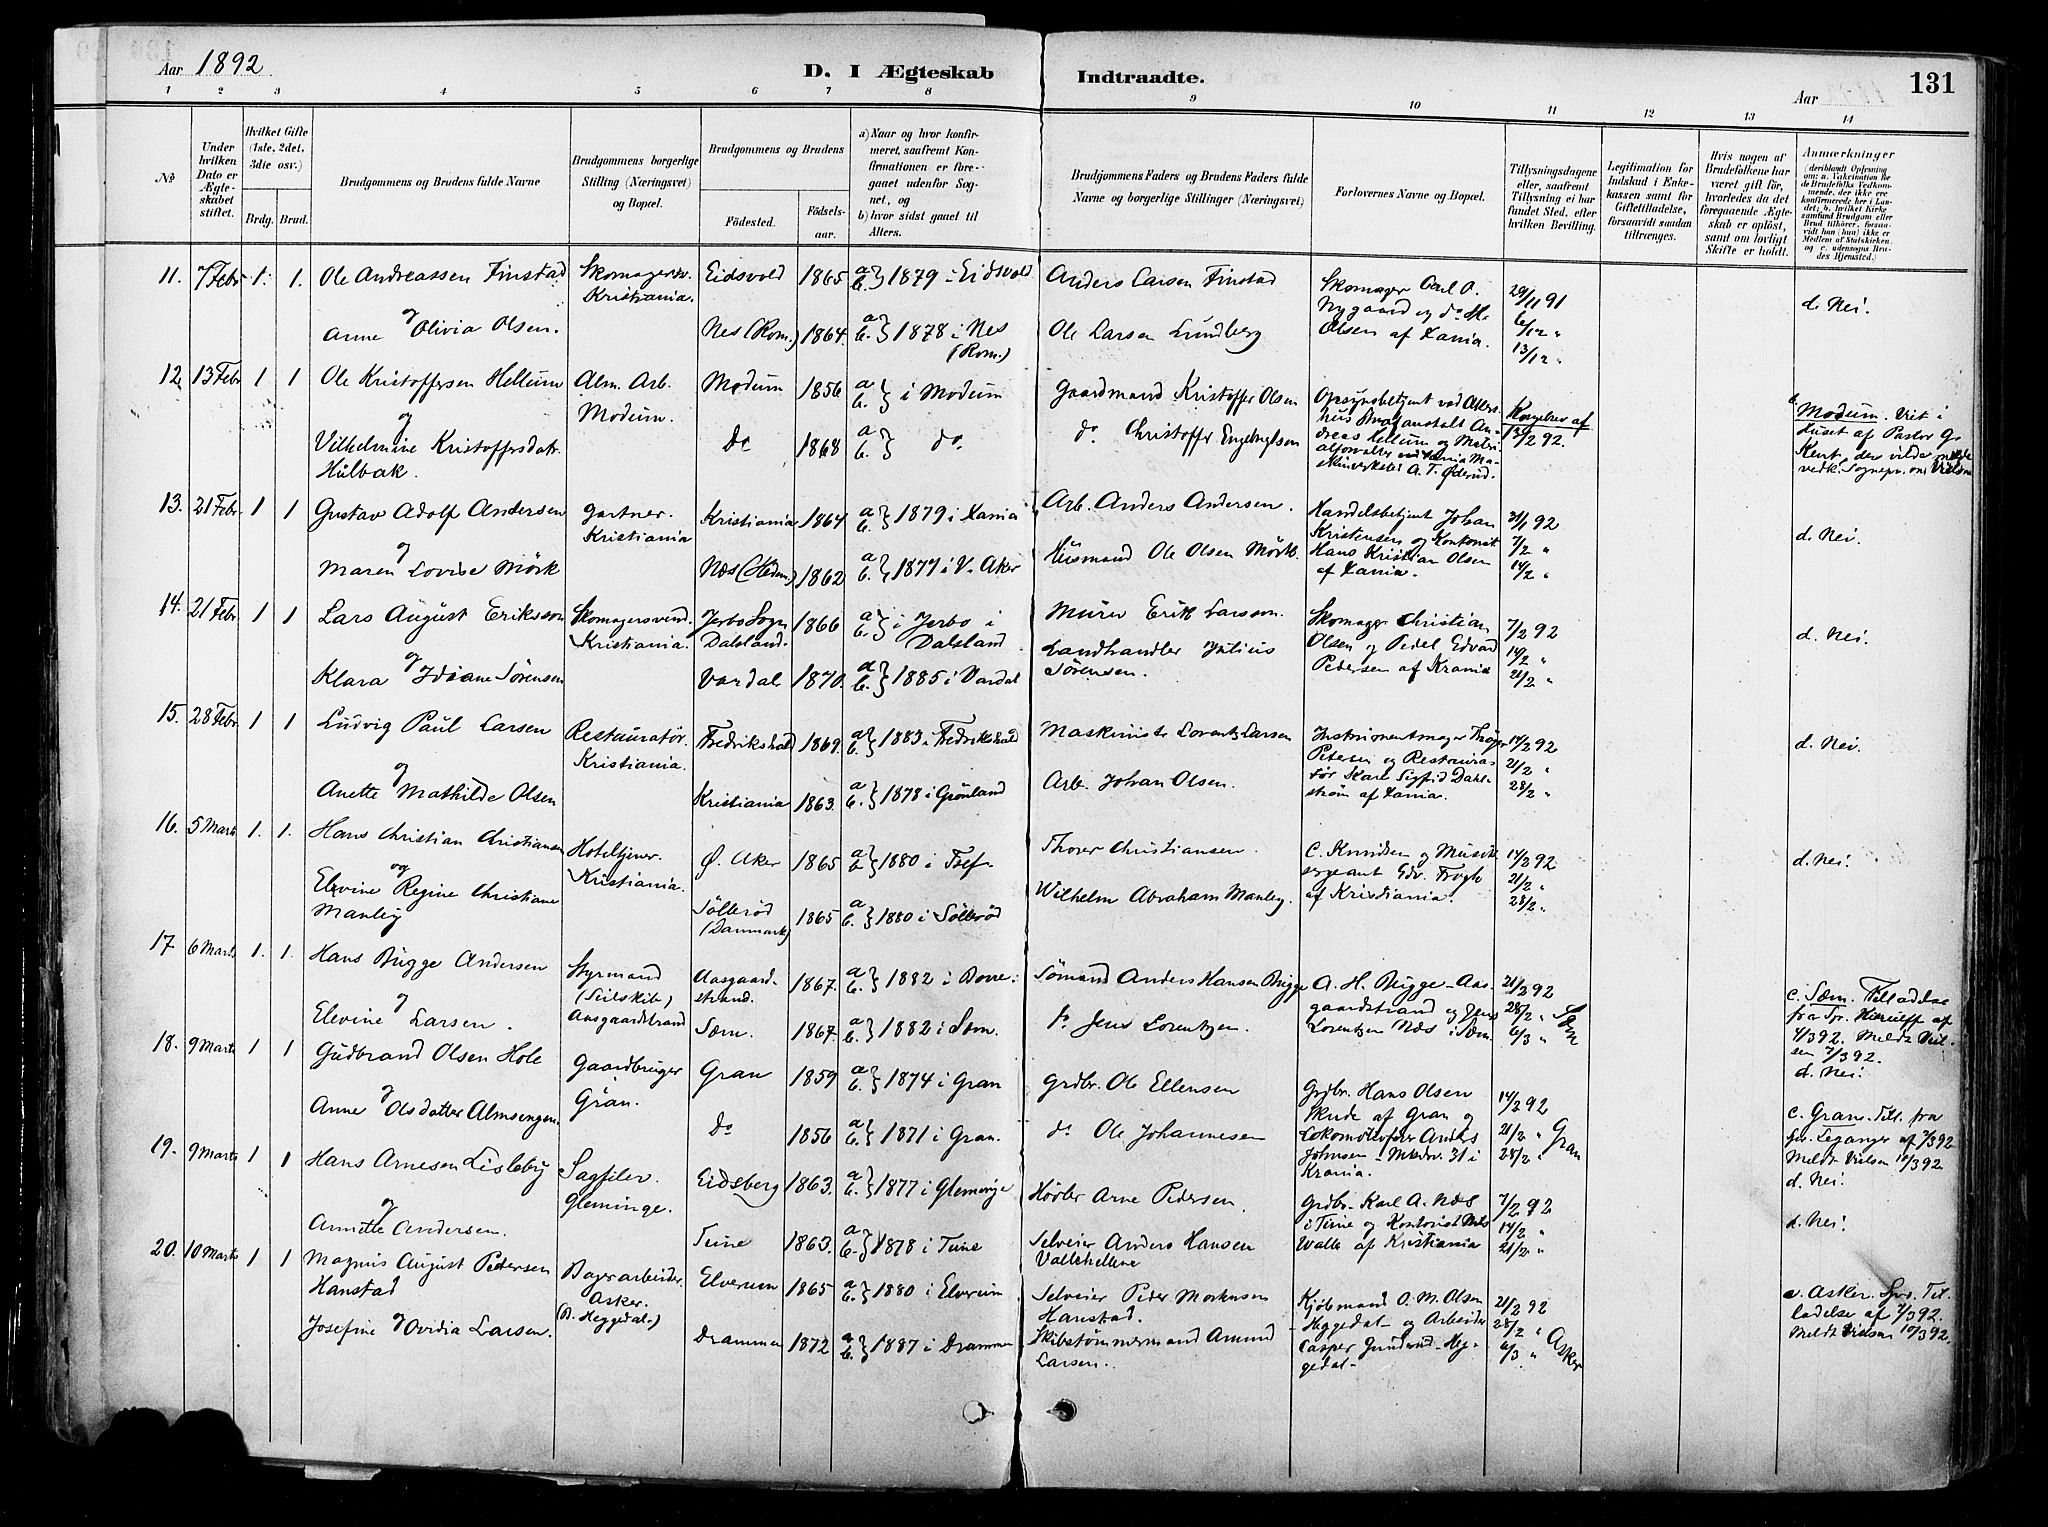 Aar 1892.
D. I Ægteskab Indtraadte.
131
Aar
1 2 3 4 5 6 7 8 9 10 11 12 13 14
No
Under hvilken Dato er Ægteskabet stiftet.
Hvilket Gifte (1ste, 2det, 3die osv.)
Brdg. Brud.
Brudgommens og Brudens fulde Navne
Brudgommens borgerlige Stilling (Næringsvei) og Bopæl.
Brudgommens og Brudens
Fødested.
Fødselsaar.
a) Naar og hvor konfirmeret, saafremt Konfirmationen er foregaaet udenfor Sognet, og
b) hvor sidst gaaet til Alters.
Brudgjommens Faders og Brudens Faders fulde Navne og borgerlige Stillinger (Næringsvei)
Forlovernes Navne og Bopæl.
Tillysningsdagene eller, saafremt Tillysning ei har fundet Sted, efter hvilken Bevilling.
Legitimation for Indskud i Enkekassen samt for Giftetilladelse, forsaavidt saadan tiltrænges.
Hvis nogen af Brudefolkene har været gift før, hvorledes da det foregaaende Ægteskab er opløst, samt om lovligt Skifte er holdt.
Anmærkninger
11. 7 Febr 1. 1. Ole Andreassen Finstad Skomagersv. Kristiania. Eidsvold 1865 a b. } 1879 i Eidsvold Anders Larsen Finstad Skomager Carl O. Nygaard og do M. Olsen af Xania. 29/11 91 6/12 " 13/12 " d. Nei.
og
Anne Olivia Olsen. Nes (Rom.) 1864. a b. } 1878 i Nes (Rom.) Ole Larsen Lundberg
12. 13 Febr 1 1 Ole Kristoffersen Hellum Alm. Arb. Modum. Modum 1856 a b. } i Modum Gaardmand Kristoffer Olsen Opsynsbetjent ved Akershus Strafanstalt Andreas Hellum og Materialforvalter ved Xania Ma- A. T. Øderud. Kongebrev af 13/2 92. Modum. Viet i Huset af Pastor G. Kent, der vilde
og
Vilhelmine Kristoffersdatr. Hulbak. Do 1868 a b. } do. do. Christoffer Engebrigtsen
13. 21 Febr. 1 1 Gustav Adolf Andersen Gartner. Kristiania Kristiania 1864 a b. } 1879 i Xania Arb. Anders Andersen. Handelsbetjent Johan Kristensen og Kontorist Hans Kristian Olsen af Xania. 31/1 92 7/2 " 14/2 " d. Nei.
og
Maren Lovise Mörk Næs (Hedm.) 1862 a b. } 1877 i V. Aker Husmand Ole Olsen Mörk.
14. 21 Febr 1 1 Lars August Eriksson Skomagersvend. Kristiania. Jerbo Sogn Dalsland. 1866 a b. } i Jerbo i Dalsland Murer Erik Larsson. Skomager Christian Olsen og Pedel Edvard Pedersen af Krania 7/2 92 14/2 " 21/2 " d. Nei.
og
Klara Idiane Sørensen Vardal 1870. a b. } 1885 i Vardal Landhandler Julius Sørensen.
15. 28 Febr. 1 1 Ludvig Paul Larsen Restauratør. Kristiania. Fredrikshald 1869. a b. } 1883 i Fredrikshald Maskinist Lorentz Larsen Instrumentmager Petersen og Restauratør Karl Sigfrid Dahlstrøm af Xania. 14/2 92 21/2 " 28/2 " d. Nei.
og
Anette Mathilde Olsen Kristiania 1863. a b. } 1878 i Grønland Arb. Johan Olsen.
16. 5 Marts 1. 1. Hans Christian Christiansen Hoteltjener. Kristiania. Ø. Aker 1865 a b } 1880 i Tref. Thorer Christiansen. C. Knudsen og Musiksergeant Edv. af Kristiania. 14/2 92 21/2 " 28/2 " d. Nei.
og
Elevine Regine Christiane Manley Søllerød (Danmark) 1865 a b. } 1880 i Søllerød Wilhelm Abraham Manley.
17 6 Marts 1. 1. Hans Bugge Andersen Styrmand (Seilskib) Aasgaardstrand Aasgaardstrand. 1867. a b. } 1882 i Borre. Sømand Anders Hansen Bugge A. H. Bugge - Aasgaardstrand og Jens Lorentzen Næs i Sæm. 21/2 92 28/2 " 6/3 " Sæm c. Sæm. Tilladelse fra Spr. af 4/3 92. Meldt Vielsen 7/3 92. d. Nei.
og
Elevine Larsen. Sæm. 1867. a b. } 1882 i Sæm. do Jens Lorentzen.
18. 9 Marts 1 1 Gudbrand Olsen Hole Gaardbruger Gran. Gran 1859 a b. } 1874 i Gran Grdbr. Ole Ellensen Grdbr. Hans Olsen Skude af Gran og Lokomotivfører Anders Johnsen - Mkdv. 31 i Krania. 14/2 92 21/2 " 28/2 " Gran c. Gran. Till. fra Leganger af 7/3 92 Meldt Vielsen 10/3 92. d. Nei.
og
Anne Olsdatter Almsengen Do 1856 a b. } 1871 i Gran. do. Ole Johannesen
19. 9 Marts 1 1 Hans Arnesen Lisleby Sagfiler. Gleminge. Eidsberg 1863. a b. } 1877 i Gleminge Arne Pedersen. Grdbr. Karl A. Næs i Tune og Kontorist Walle af Kristiania 7/2 92 14/2 " 21/2 " d. Nei.
og
Annette Andersen. Tune 1863. a b. } 1878 i Tune Selveier Anders Hansen Vallehellene
20. 10 Marts 1 1 Magnus August Pedersen Hanstad Bagerarbeider. Asker. (B. Heggedal.) Elverum 1865 a b. } 1880 i Elverum Selveier Peder Hanstad. Kjøbmand O. M. Olsen - Heggedal - og Arbeider Casper Gunderud - Heggedal - 21/2 92 28/2 " 6/3 " Asker c. Asker. Spr. Tilladelse af 7/3 92. Meldt Vielsen 10/3 92.
og
Josefine Ovidia Larsen. Drammen 1872 a b. } 1887 i Drammen Skibstømmermand Amund Larsen.